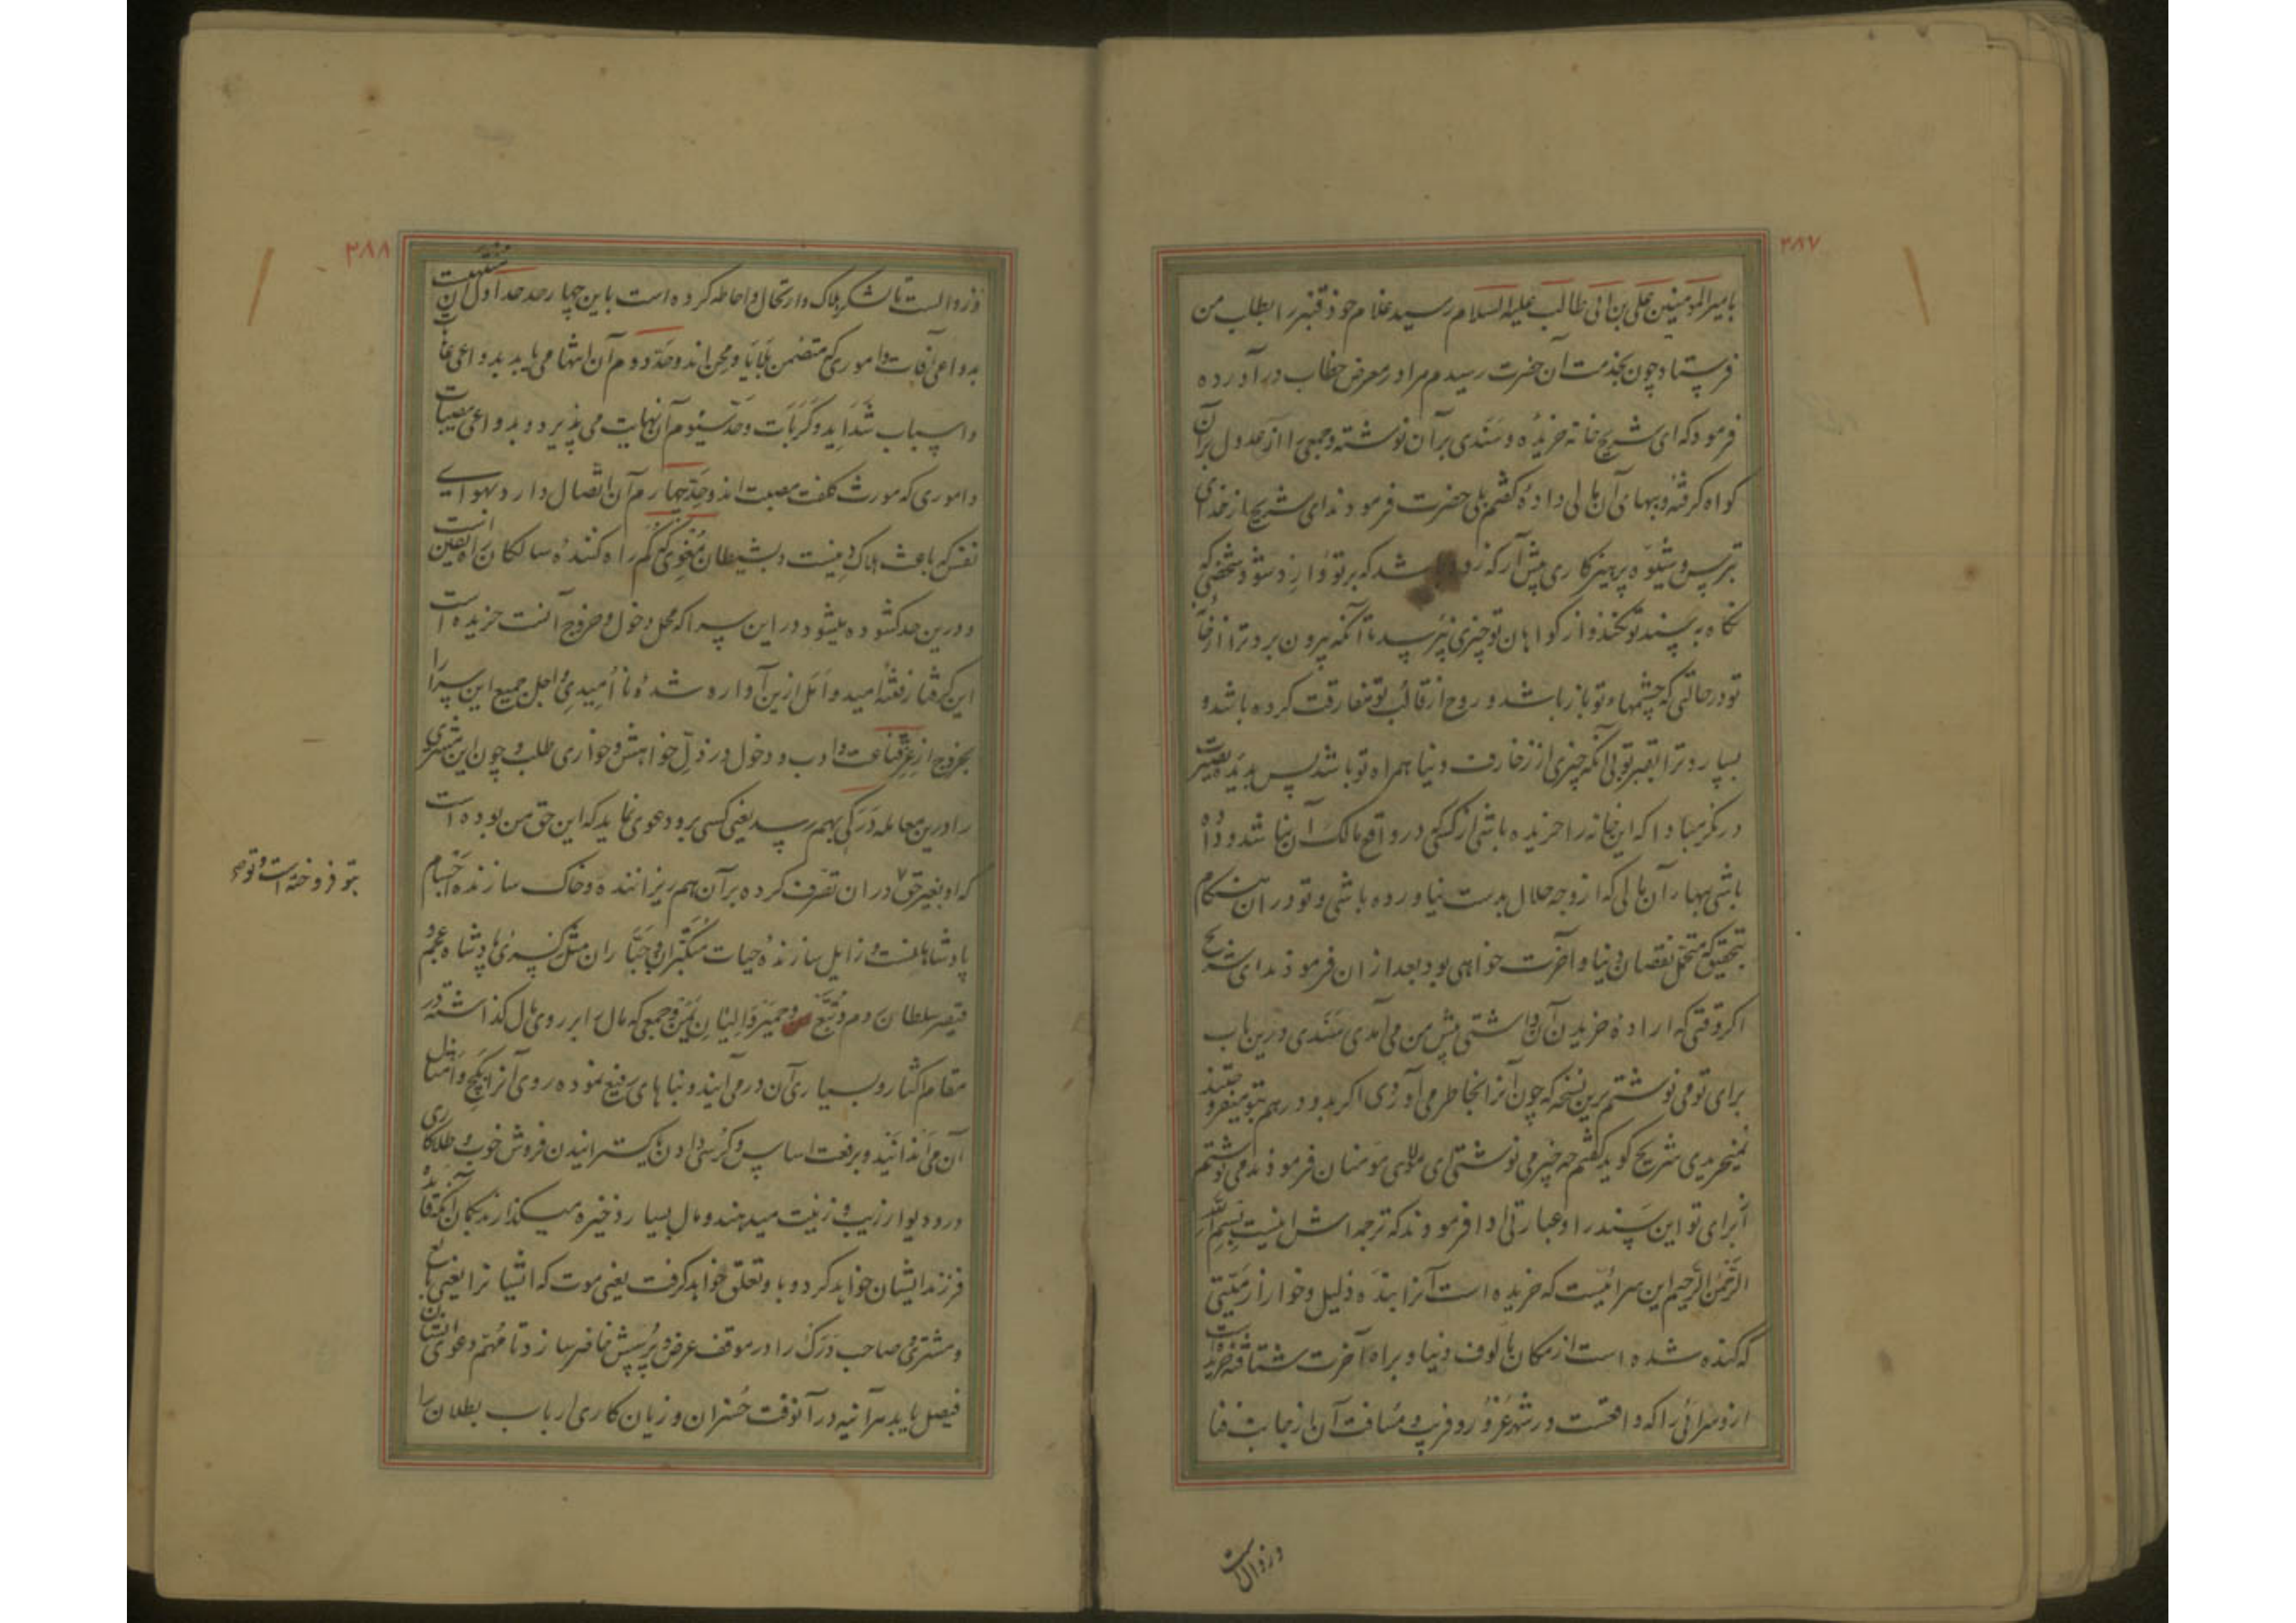 ۲۸۷
بامیرالمؤمنین علی بن ابی طالب علیه السلام رسید غلام خود قنبر را بطلب من
فرستاد چون بخدمت آن حضرت رسیدم مرا در معرض خطاب درآورده
فرمود که ای شریح خانه خریدهٔ و سندی بر آن نوشته و جمعی را از عدول بر آن
کواه کرفته و ببهای آن مالی دادهٔ کفتم بلی حضرت فرمودند ای شریح از خدای
بترس و شیوه پرهیزکاری پیش آر که زود باشد که بر تو وارد شود شخصی که
نکاه به سند تو نکند و از کواهان تو چیزی نپرسد تا آنکه بیرون برد ترا از خانه
تو در حالتی که چشمهاء تو باز باشد و روح از قالب تو مفارقت کرده باشد و
بسپارد ترا بقبر تو بی آنکه چیزی از زخارف دنیا همراه تو باشد پس بدیده بصیرت
درنکر مبادا که این خانه را خریده باشی از کسی که در واقع مالک آن نباشد و داده
باشی بهاء آن مالی که از وجه حلال بدست نیاورده باشی و تو در آن هنکام
بتحقیق که متحمل نقصان دنیا و آخرت خواهی بود بعد از ان فرمودند ای شریح
اکر وقتی که ارادهٔ خریدن آن داشتی پیش من می آمدی سندی درین باب
برای تو می نوشتم برین نسخه که چون آنرا بخاطر می آوردی اکر بدو درهم بتو میفروختند
نمیخریدی شریح کوید کفتم چه چیز می نوشتی ای مولای مومنان فرمودند می نوشتم
از برای تو این سند را و عبارتی ادا فرمودند که ترجمه اش اینست بسم الله
الرحمن الرحیم این سرائیست که خریده است آنرا بندهٔ ذلیل و خوار از میتی
که کنده شده است از مکان مألوف دنیا و براه آخرت شتافته خریده است
ازو سرائی را که واقعست در شهر غرور و فریب و مسافت آن از جانب فنا
و زوالست
۲۸۸
و زوالست تا لشکر هلاک و ارتحال و احاطه کرده است باین چهار حد حد اول آن منتهیست
بدواعی آفات و اموری که متضمن بلایا و محن اند و حد دوم آن انتها می یابد بدواعی
و اسباب شداید و کربات و حد سیوم آن نهایت می پذیرد و بدواعی مصیبات
و اموری که مورث کلفت مصیبت اند و حد چهارم آن اتصال دارد بهوای
نفس که باعث هلاک دینست و بشیطان مغوی که کم راه کنندهٔ سالکان راه یقین است
و درین حد کشوده میشود در این سرا که محل دخول و خروج آنست خریده است
این کرفتار رفتهٔ امید و امل ازین آواره شدهٔ نا امیدی و اجل جمیع این سرا را
بخروج از عز قناعت و ادب و دخول در ذل خواهش و خواری طلب و چون این مشتری
را درین معامله درکی بهم رسد یعنی کسی برو دعوی نماید که این حق من بوده است
که او بغیر حق در ان تصرف کرده بر آن هم ریزاننده و خاک سازنده اجسام
بتو فروخته است و تو هم
پادشاهانست و زایل سازندهٔ حیات متکبران و جباران مثل کسری پادشاه عجم و
قیصر سلطان روم و تبع و حمیر والیان یمن و جمعی که مال را بر روی مال کذاشته در
مقام اکثار و بسیاری آن درمی آیند و بناهای رفیع نموده روی آنرا بکچ و امثال
آن می اندایند و برفعت اساس و کرسی دادن و کسترانیدن فروش خوب و طلاکاری
در و دیوار زیب و زینت میدهند و مال بسیار ذخیره میکذارند بکمان آنکه فایده
فرزند ایشان خواهد کرد و باو تعلق خواهد کرفت یعنی موت که اشیا نرا یعنی بایع
و مشتری و صاحب درک را در موقف عرض و پرسش حاضر سازد تا مهم دعوی ایشان
فیصل یابد هر آینه در آنوقت خسران و زیان کاری ارباب بطلان را